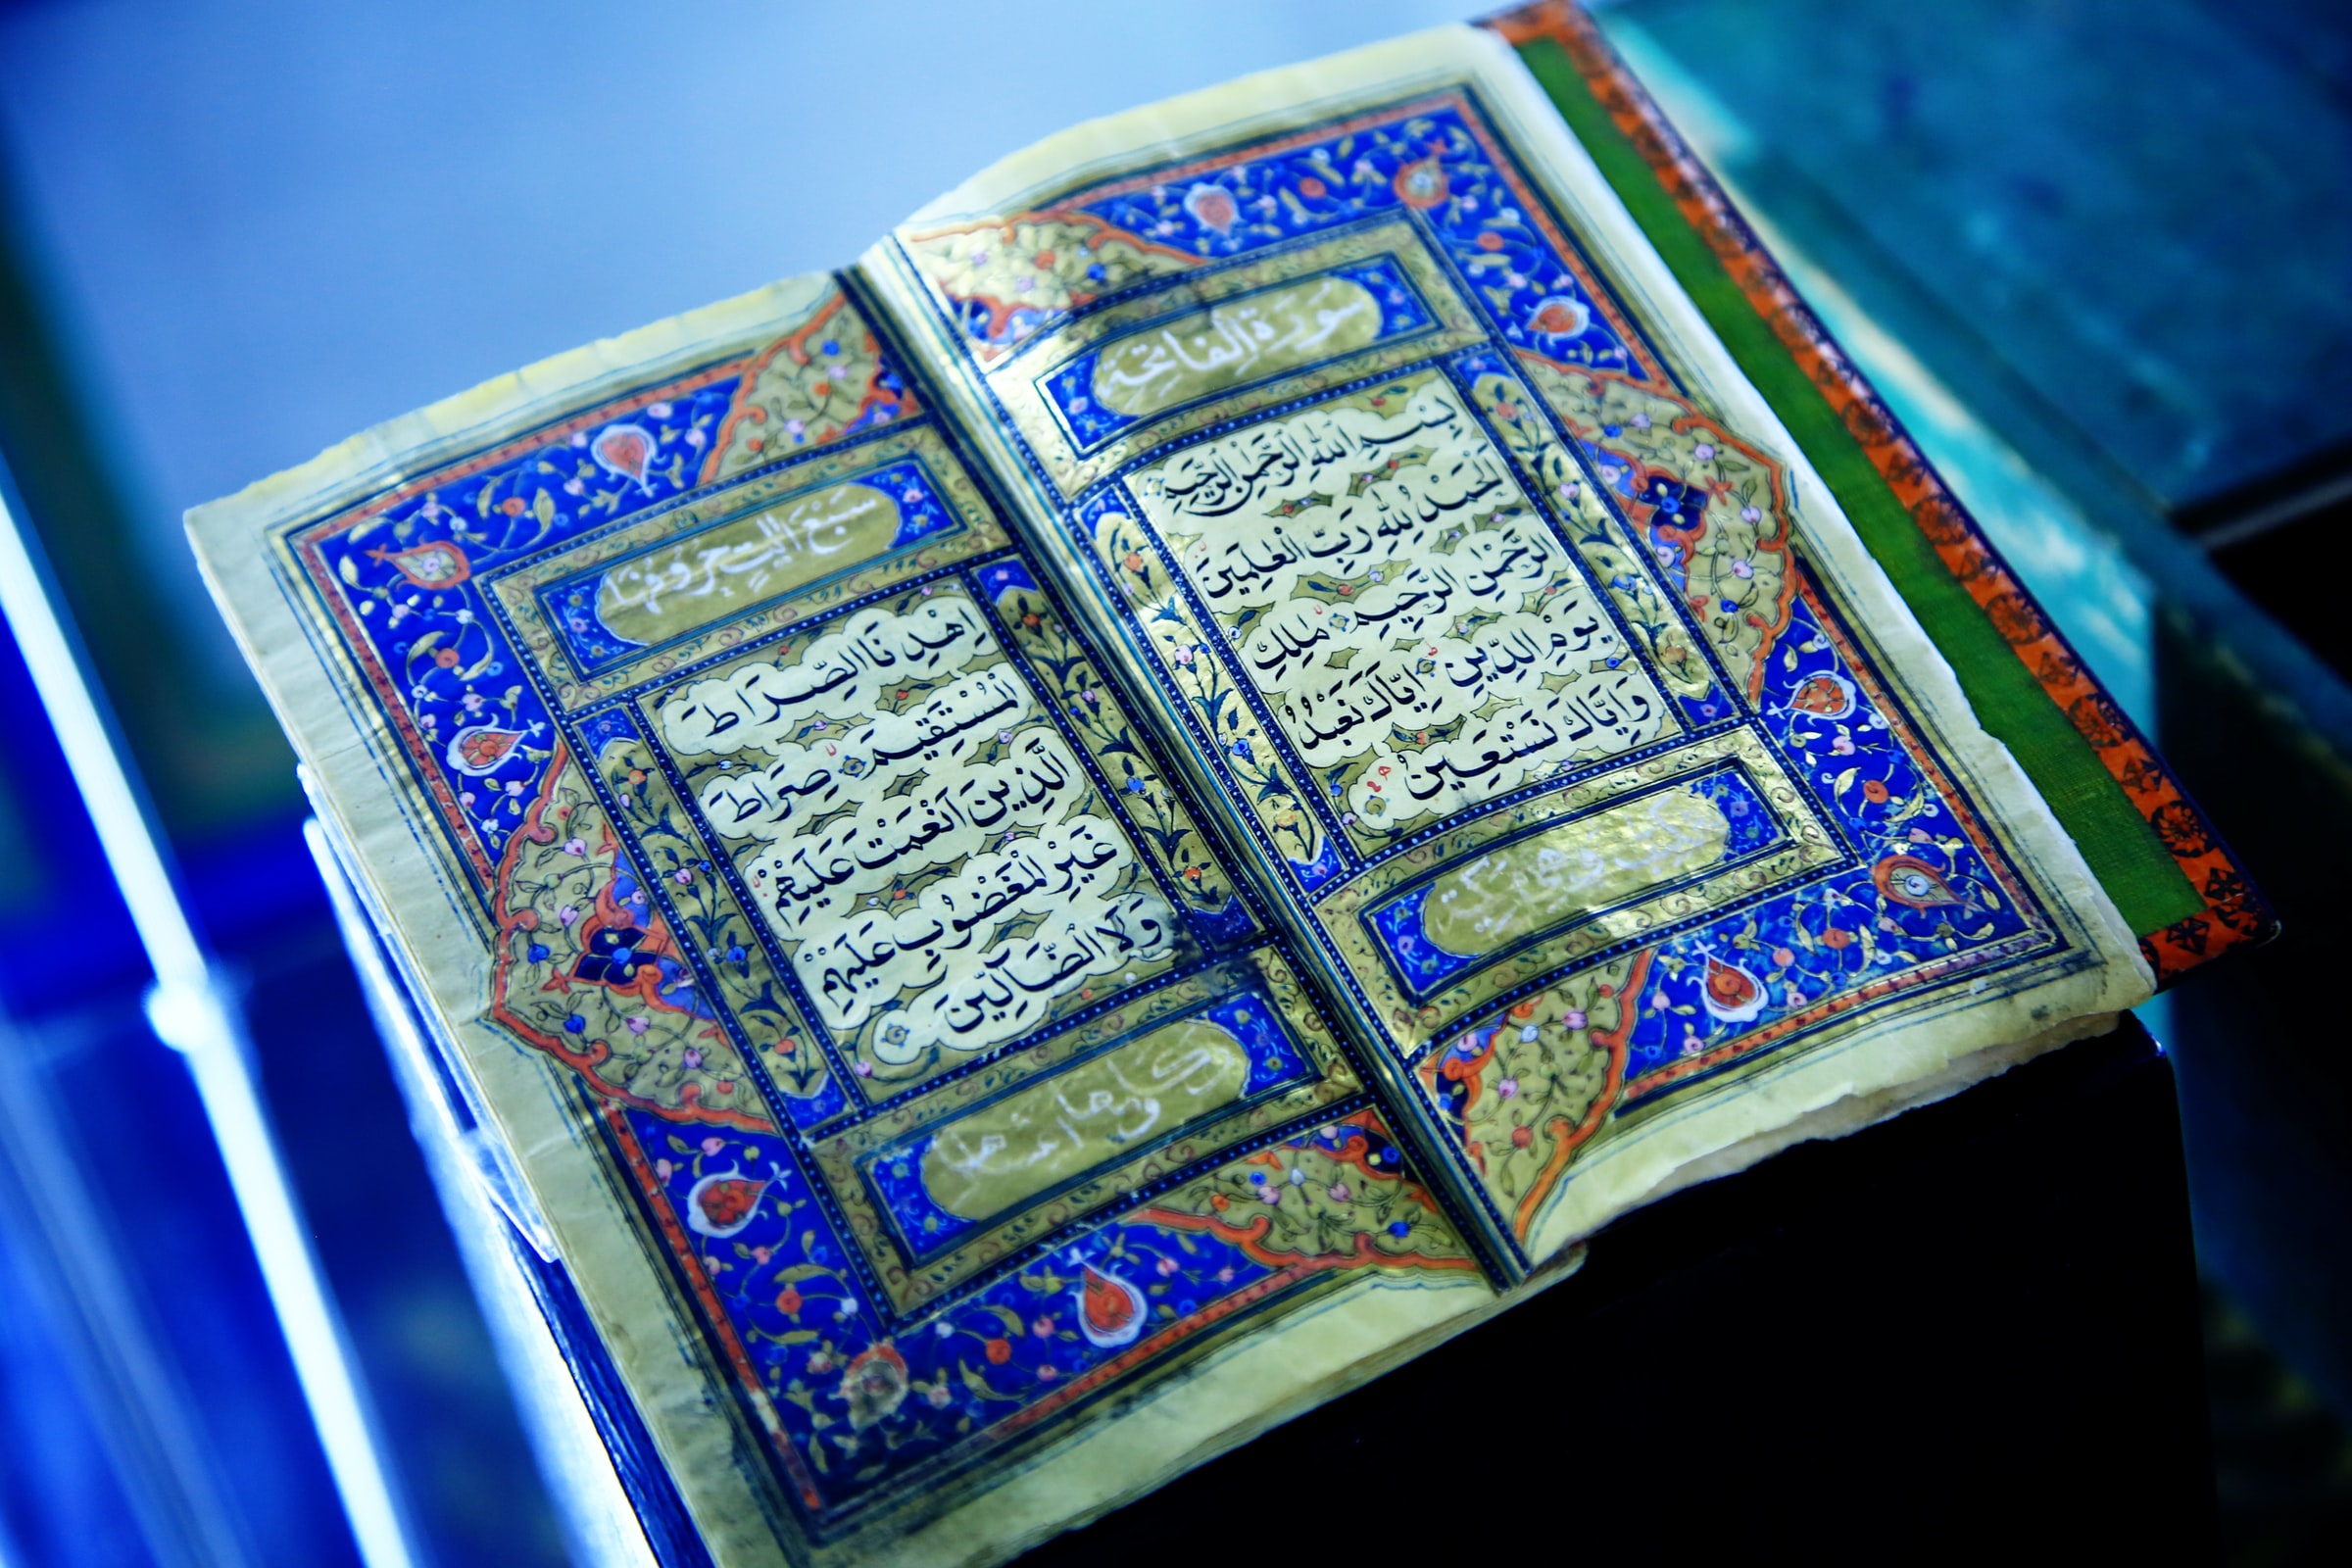 سُورَةُ الفَاتِحَةِ
بِسْمِ اللهِ الرَّحْمٰنِ الرَّحِيمِ
اَلْحَمْدُ لِلّٰهِ رَبِّ الْعٰلَمِينَ
الرَّحْمٰنِ الرَّحِيمِ مٰلِكِ
يَوْمِ الدِّينِ اِيَّاكَ نَعْبُدُ
وَاِيَّاكَ نَسْتَعِينُ
سَبْعَ اٰيٰتٍ حُرُوفُهَا
اِهْدِنَا الصِّرَاطَ
الْمُسْتَقِيمَ صِرَاطَ
الَّذِينَ اَنْعَمْتَ عَلَيْهِمْ
غَيْرِ الْمَغْضُوبِ عَلَيْهِمْ
وَلَا الضَّآلِّينَ